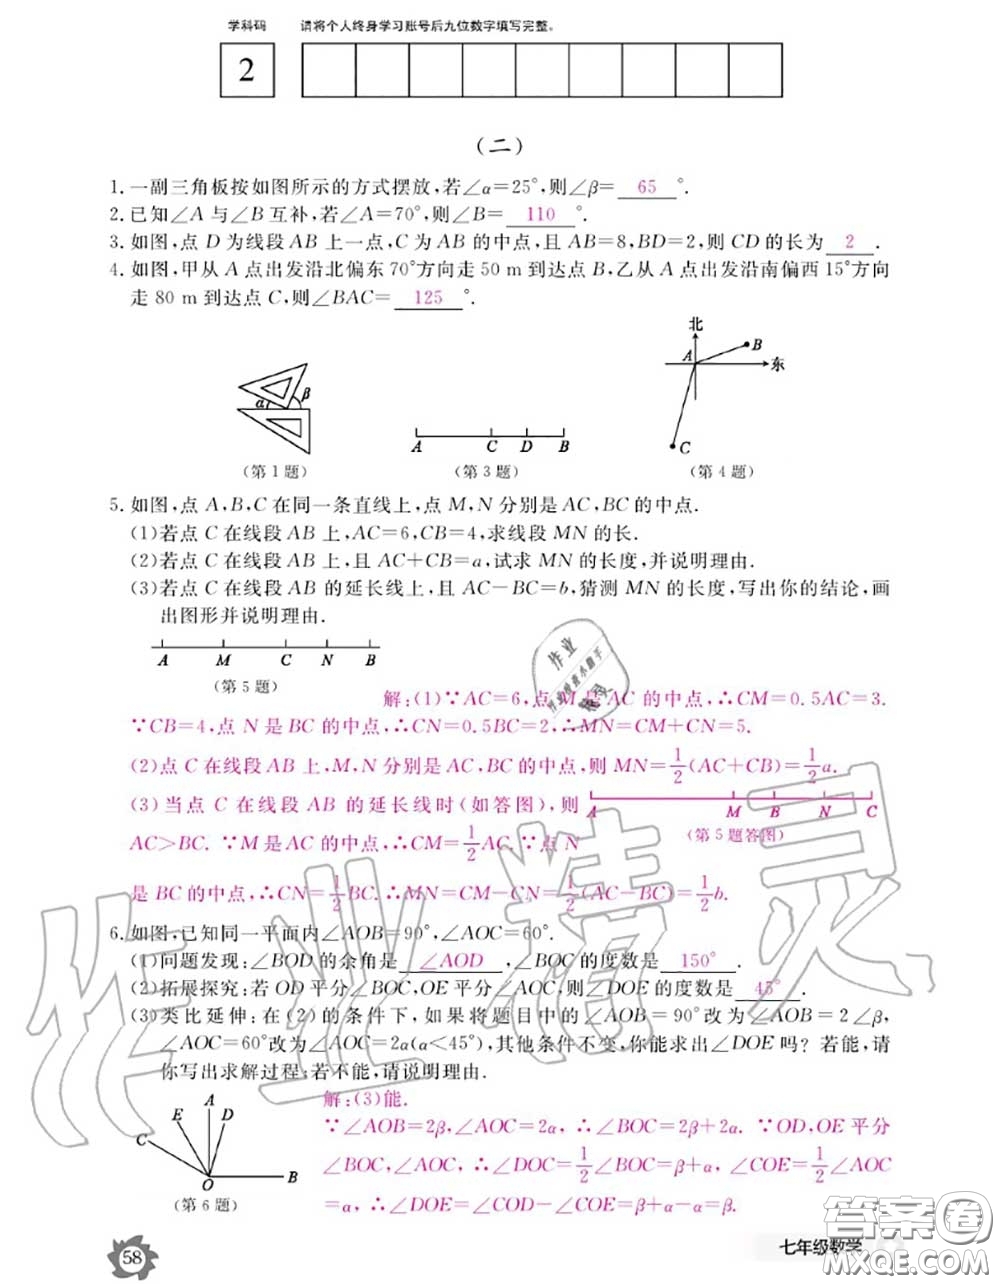 学科码 请将个人终身学习账号后九位数字填写完整。
2
(二)
1. 一副三角板按如图所示的方式摆放,若∠α=25°,则∠β= 65 °.
2. 已知∠A与∠B互补,若∠A=70°,则∠B= 110 °.
3. 如图,点 D 为线段 AB 上一点,C 为 AB 的中点,且 AB=8,BD=2,则 CD 的长为 2 .
4. 如图,甲从 A 点出发沿北偏东70°方向走 50 m 到达点 B,乙从 A 点出发沿南偏西 15°方向
走 80 m 到达点 C,则∠BAC= 125 °.
α β
(第1题)
A C D B
(第3题)
北
A B
东
C
(第4题)
5. 如图,点 A,B,C 在同一条直线上,点 M,N 分别是 AC,BC 的中点.
(1)若点 C 在线段 AB 上,AC=6,CB=4,求线段 MN 的长.
(2)若点 C 在线段 AB 上,且 AC+CB=a,试求 MN 的长度,并说明理由.
(3)若点 C 在线段 AB 的延长线上,且 AC-BC=b,猜测 MN 的长度,写出你的结论,画
出图形并说明理由.
A M C N B
(第5题)
解:(1)∵AC=6,点 M 是 AC 的中点,∴CM=0.5AC=3.
∵CB=4,点 N 是 BC 的中点,∴CN=0.5BC=2,∴MN=CM+CN=5.
(2)点 C 在线段 AB 上,M,N 分别是 AC,BC 的中点,则 MN=1/2(AC+CB)=1/2a.
(3)当点 C 在线段 AB 的延长线时(如答图),则
AC>BC. ∵M 是 AC 的中点,∴CM=1/2AC. ∵点 N
A M B N C
(第5题答图)
是 BC 的中点,∴CN=1/2BC. ∴MN=CM-CN=1/2(AC-BC)=1/2b.
6. 如图,已知同一平面内∠AOB=90°,∠AOC=60°.
(1)问题发现:∠BOD 的余角是 ∠AOD ,∠BOC 的度数是 150° .
(2)拓展探究:若 OD 平分∠BOC,OE 平分∠AOC,则∠DOE 的度数是 45° .
(3)类比延伸:在(2)的条件下,如果将题目中的∠AOB=90°改为∠AOB=2∠β,
∠AOC=60°改为∠AOC=2α(α<45°),其他条件不变,你能求出∠DOE 吗?若能,请
你写出求解过程;若不能,请说明理由.
A
E D
C
O B
(第6题)
解:(3)能.
∵∠AOB=2β,∠AOC=2α, ∴∠BOC=2β+2α. ∵OD,OE 平分
∠BOC,∠AOC, ∴∠DOC=1/2∠BOC=β+α,∠COE=1/2∠AOC
=α, ∴∠DOE=∠COD-∠COE=β+α-α=β.
作业精灵
作业
作业检查小助手
精灵
58
七年级数学
答案圈
MXQE.COM